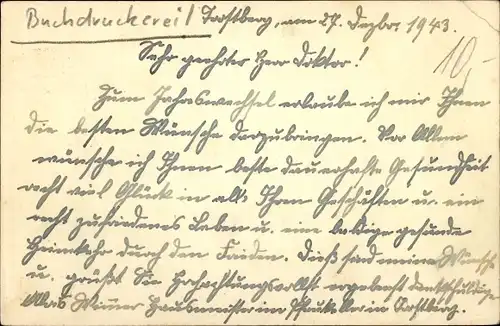 Buchdruckerei! Trostberg, am 27. Dezbr. 1943.
10,-
Sehr geehrter Herr Doktor!
Zum Jahreswechsel erlaube ich mir Ihnen
die besten Wünsche darzubringen. Vor Allem
wünsche ich Ihnen beste dauerhafte Gesundheit
recht viel Glück in all Ihren Geschäften u. ein
recht zufriedenes Leben u. eine baldige gesunde
Heimkehr durch den Frieden. Dieß sind meine Wünsche
u. grüßt Sie Hochachtungsvollst ergebenst
Hausmeister in Trostberg.